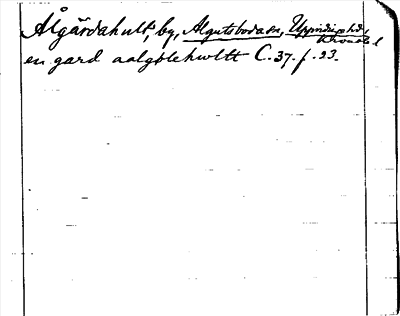 Ålgärdahult, by, Algutsboda sn, Uppvidinge hd,
Kronob. l
en gard aalgølehwltt C. 37. f. 23.